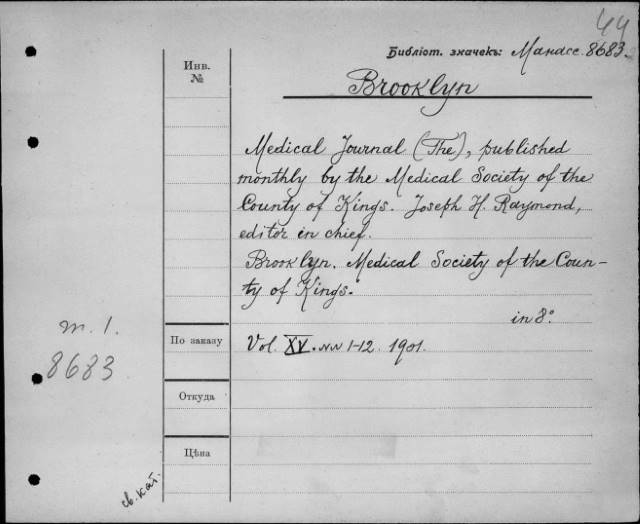 44
Библіот. значекъ: Манасс. 8683.
Инв.
№
Brooklyn
Medical Journal (The), published
monthly by the Medical Society of the
County of Kings. Joseph H. Raymond,
editor in chief.
Brooklyn. Medical Society of the Coun-
ty of Kings.
in 8°
т. 1.
8683
По заказу
Vol. XV. NN 1-12. 1901.
Откуда
Цѣна
св. кат.